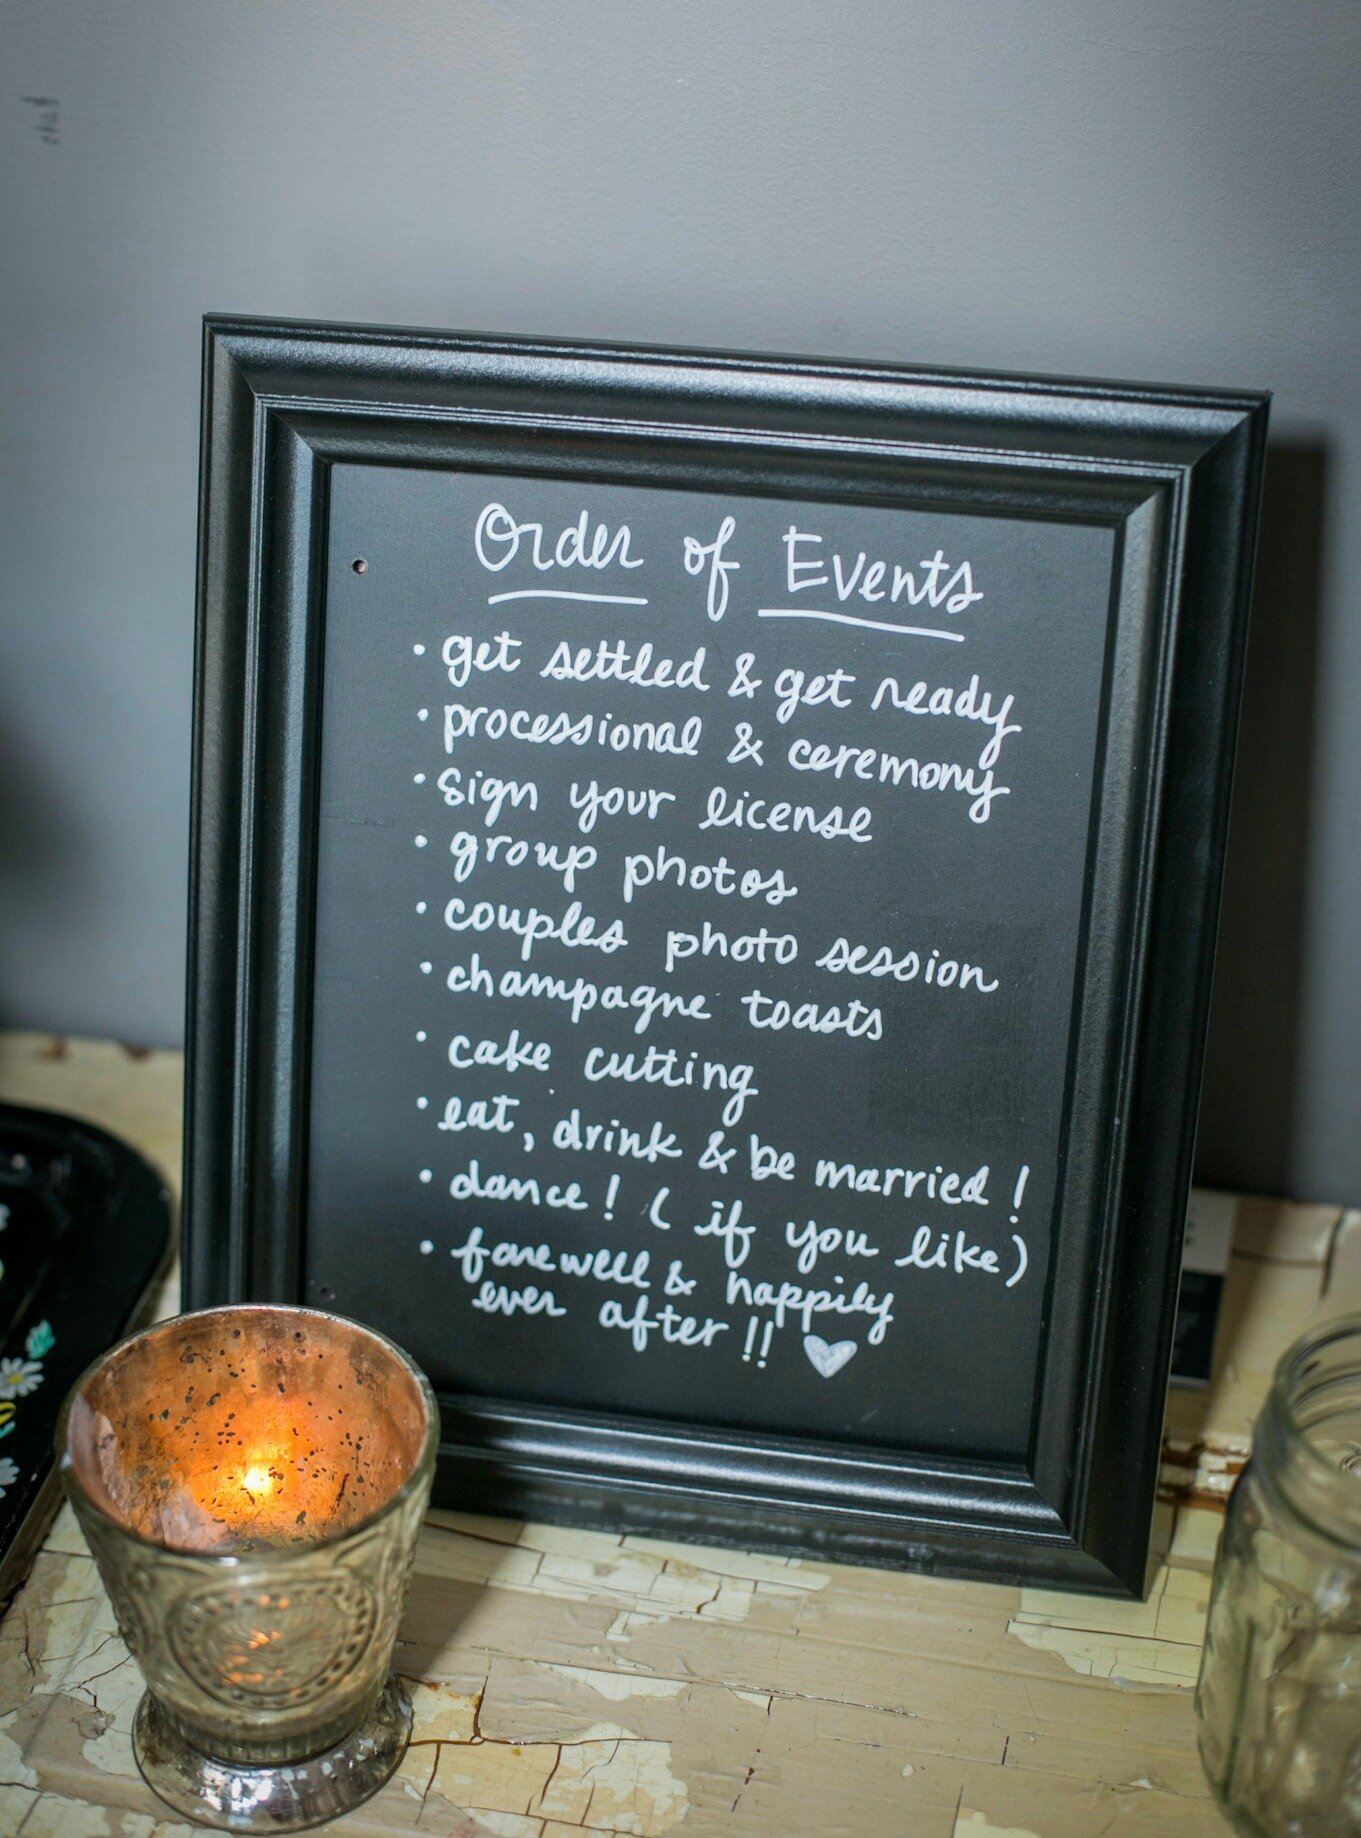 Order of Events
• get settled & get ready
• processional & ceremony
• sign your license
• group photos
• couples photo session
• champagne toasts
• cake cutting
• eat, drink & be married!
• dance! (if you like)
• farewell & happily
ever after!! ♥